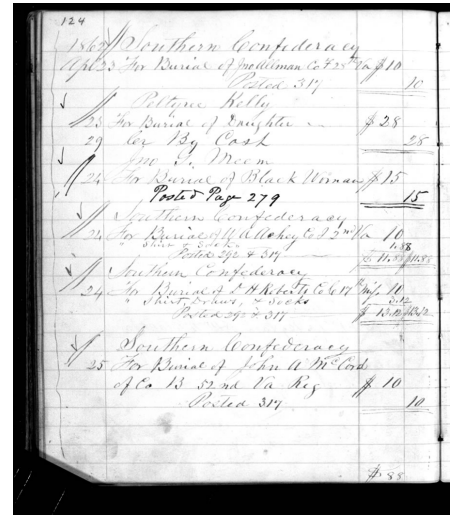 124
1862 Southern Confederacy
Apl 23 For Burial of Jno Allman Co F 28th Va $10
Posted 317 10
Kelly
23 For Burial of Daughter $28
29 Cr By Cash 28
Jno S. Meem
24 For Burial of Black Woman $15
Posted Page 279 15
Southern Confederacy
24 For Burial of A Co I 2nd Va 10
" Shirt & Socks 1.88
Posted 292 & 317 $11.88 $11.88
Southern Confederacy
24 For Burial of Roberts Co C 17th Miss 10
" Shirt, Drawers, & Socks 3.12
Posted 292 & 317 $13.12 $13.12
Southern Confederacy
25 For Burial of John A McCord
of Co B 52nd Va Reg $10
Posted 317 10
$88